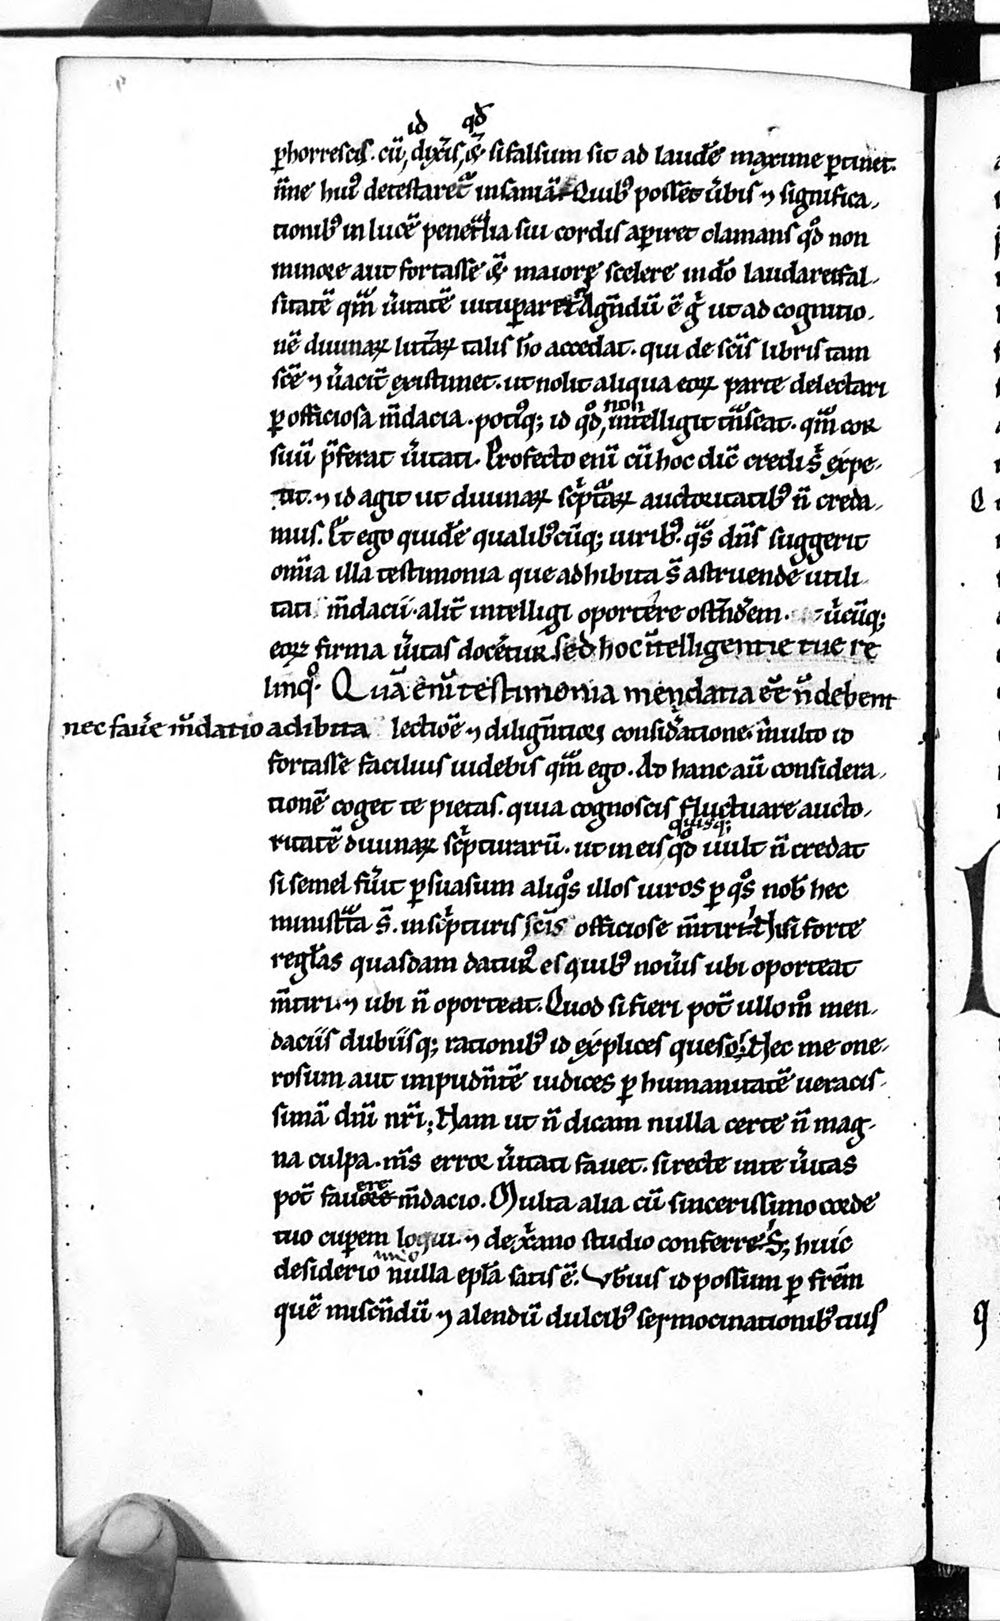 id qđ
ꝑhorrescis. cū, dix̄is, q̄ si falsum sit ad laudē maxime ꝑtinet.
n̄ne huiꝰ detestaret᷑ insaniā. Quibꝰ possēt ūbis ⁊ significa-
tionibꝰ in lucē penet̄lia sui cordis aꝑiret clamans qđ non
minore aut fortasse ē maiore scelere in dō laudaret fal-
sitatē qm̄ ūitatē uituꝑaret᷑. Agn̄dū ē g̊ ut ad cognitio-
nē diuinaꝝ litt̄aꝝ talis hō accedat. qui de sc̄is libris tam
sc̄e ⁊ ūacit̄ existimet. ut nolit aliqua eoꝝ parte delectari
ꝑ officiosa m̄dacia. potiꝰq; id qđ, non intelligit t̄nseat. qm̄ cor
suū p̄ferat ūitati. Profecto enī cū hoc dic̄ credi s̄ expe-
tit. ⁊ id agit ut diuinaꝝ sc̄ptaꝝ auctoritatibꝰ n̄ creda-
mus. Et ego quidē qualibꝰcūq; uiribꝰ. qͣs dn̄s suggerit
om̄ia illa testimonia que adhibita s̄ astruende utili
tati m̄dacii. alit̄ intelligi oportere ostn̄dem. ūcūq;
eoꝝ firma ūitas docētur. sed hoc īntelligentie tue re
linqͦ. Quā enī testimonia mendatia eē n̄ debent
nec fauē m̄datio adibita lectiōe ⁊ dilign̄tiori considātione. multo id
fortasse facilius uidebis qm̄ ego. Ad hanc aū considera-
tionē coget te pietas. quia cognoscis fluctuare aucto-
ritatē diuinaꝝ sc̄pturarū. ut in eis qđ quisq; uult n̄ credat
si semel fūit ꝑsuasum aliqͦs illos uiros ꝑ qͦs nob̄ hec
ministͣta s̄. in sc̄pturis sc̄is officiose m̄tiri. Nisi forte
regl̄as quasdam daturꝰ es quibꝰ noūis ubi oporteat
m̄tiri ⁊ ubi n̄ oporteat. Quod si fieri pot̄ ullo mͦ men-
daciis dubiisq; rationibꝰ id explices queso. Nec me one-
rosum aut impudn̄tē iudices ꝑ humanitatē ueracis-
simā dnī nr̄i. Nam ut n̄ dicam nulla certe n̄ mag-
na culpa. m̄s error ūitati fauet. si recte in te ūitas
pot̄ fauere m̄dacio. Multa alia cū sincerissimo corde
tuo cuꝑem loqui. ⁊ de xͣano studio conferre. S; huic
desiderio nulla epl̄a satis ē. Ub̄ius id possum ꝑ frēm
quē miscn̄dū ⁊ alendū dulcibꝰ sermocinationibꝰ tuis